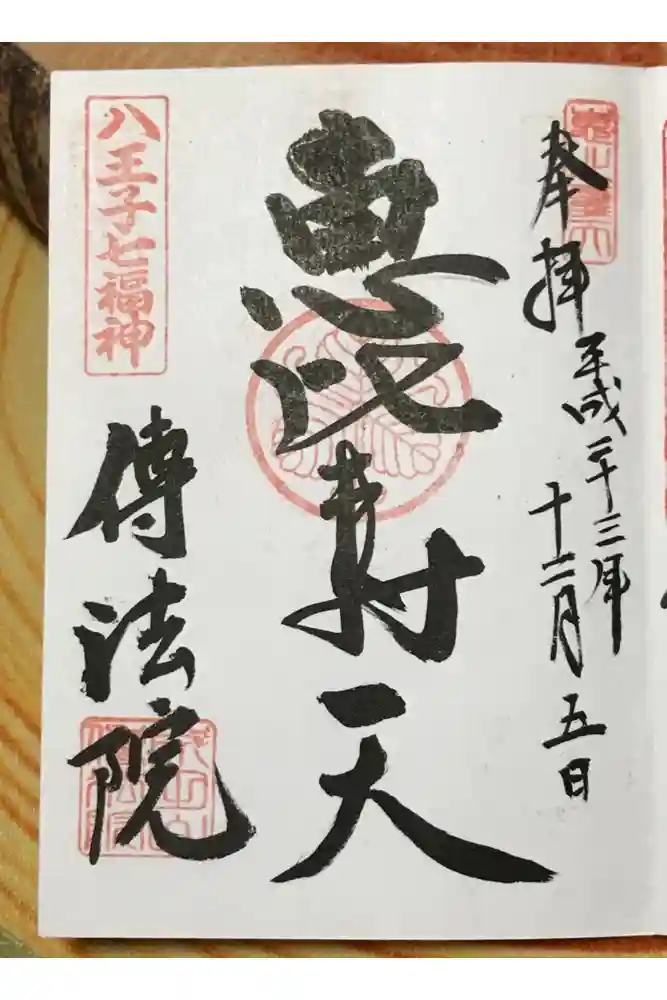 奉拝
平成二十三年
十二月五日
恵比寿天
八王子七福神
傳法院